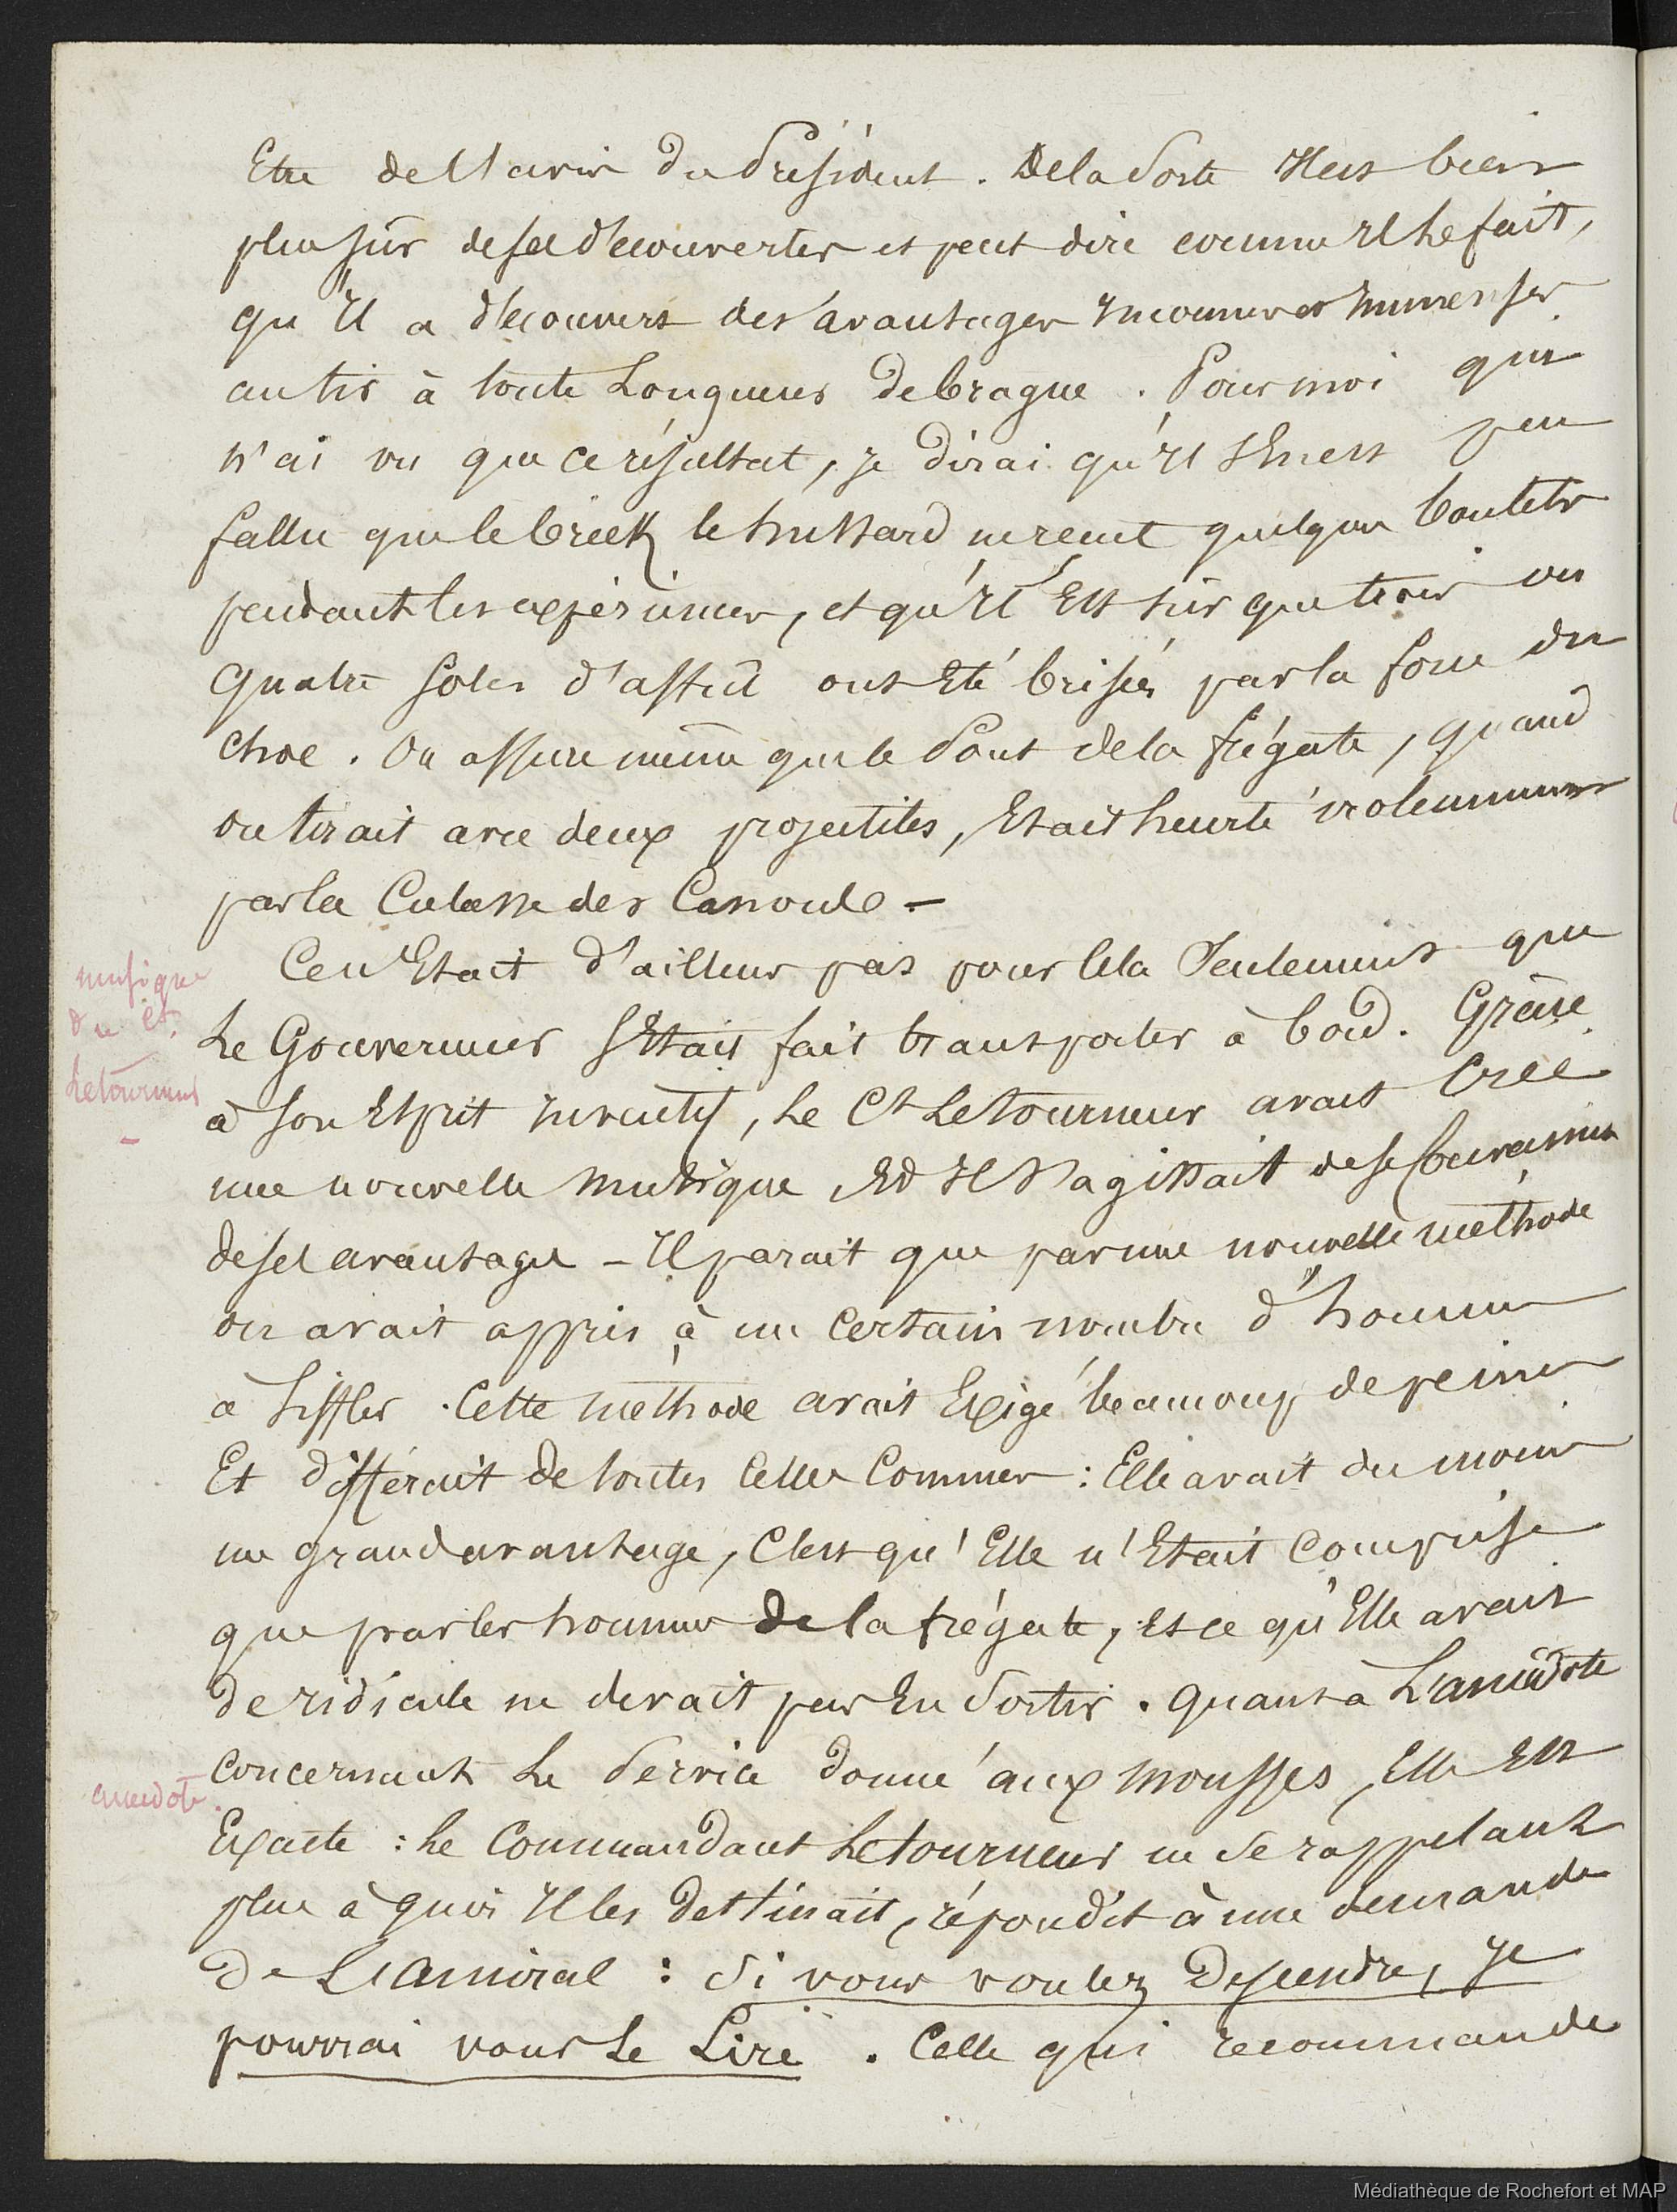 Etre de l'avis du Président. De la sorte Il est bien
plus sûr de ses découvertes et peut dire comme Il le fait,
qu'Il a découvert des avantages Inconnus et Immenses
au tir à toute Longueur de brague. Pour moi qui
n'ai vu que ce résultat, je dirai qu'Il s'en est peu
fallu que le brick le hussard ne recut quelques boulets
pendant les expériences, et qu'Il Est sûr que trois ou
quatre soles d'affût ont Eté brisées par la force du
choc. On assure même que le Pont de la frégate, quand
on tirait avec deux projectiles, Etait heurté violemment
par la Culasse des Canons –
Ce n'Etait d'ailleurs pas pour Cela Seulement que
Le Gouverneur s'Etait fait transporter à bord. Grâce
à son Esprit Inventif, Le Ct Letourneur avait Créé
une nouvelle musique Et Il s'agissait de se convaincre
de ses avantages – Il parait que par une nouvelle méthode
on avait appris à un certain nombre d'hommes
à siffler. Cette méthode avait Exigé beaucoup de peines
Et différait de toutes Celles Connues : Elle avait du moins
un grand avantage, C'est qu'Elle n'Etait Comprise
que par les hommes de la frégate, et ce qu'Elle avait
de ridicule ne devait pas En Sortir. Quant à L'anecdote
concernant Le Service donné aux mousses, Elle Est
Exacte : Le Commandant Letourneur ne Se rappelant
plus à quoi Il les Destinait, répondit à une demande
de L'amiral : Si vous voulez Descendre, Je
pourrai vous Le Lire. Celle qui recommande
musique
du Ct.
Letourneur
–
anecdote.
Médiathèque de Rochefort et MAP